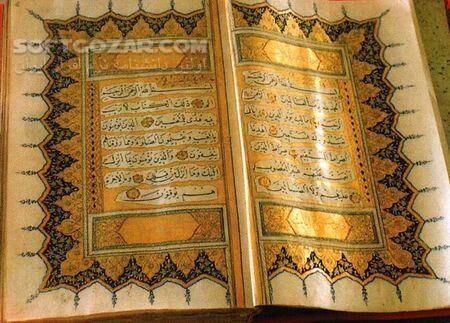 SOFTGOZAR.COM
بسم الله الرحمن الرحيم
الحمد لله رب العالمين الرحمن
الرحيم مالك يوم الدين اياك
نعبد واياك نستعين اهدنا
الصراط المستقيم صراط الذين
انعمت عليهم غير المغضوب
عليهم ولا الضالين
بسم الله الرحمن الرحيم
الم ذلك الكتاب لا ريب
فيه هدى للمتقين الذين يؤمنون
بالغيب ويقيمون الصلوة ومما رزقناهم
ينفقون والذين يؤمنون بما انزل
اليك وما انزل من قبلك وبالاخرة
هم يوقنون